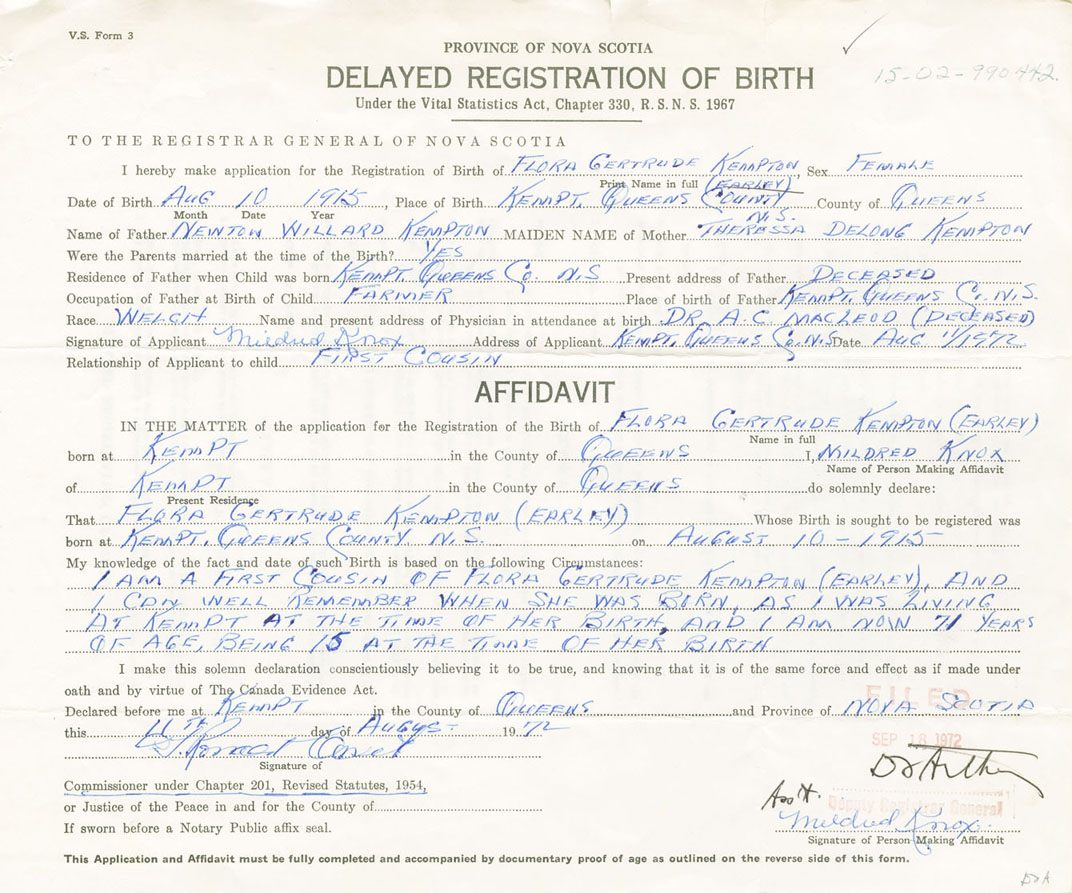 V.S. Form 3
PROVINCE OF NOVA SCOTIA
15-02-990442.
DELAYED REGISTRATION OF BIRTH
Under the Vital Statistics Act, Chapter 330, R. S. N. S. 1967
TO THE REGISTRAR GENERAL OF NOVA SCOTIA
I hereby make application for the Registration of Birth of FLORA GERTRUDE KEMPTON, Sex FEMALE
Print Name in full (EARLEY)
Date of Birth AUG 10 1915, Place of Birth KEMPT, QUEENS COUNTY County of QUEENS
Month Date Year N.S.
Name of Father NEWTON WILLARD KEMPTON MAIDEN NAME of Mother THERESSA DELONG KEMPTON
Were the Parents married at the time of the Birth? YES
Residence of Father when Child was born KEMPT, QUEENS CO. N.S Present address of Father DECEASED
Occupation of Father at Birth of Child FARMER Place of birth of Father KEMPT, QUEENS CO. N.S.
Race WELCH Name and present address of Physician in attendance at birth DR. A.C. MACLEOD (DECEASED)
Signature of Applicant Mildred Knox Address of Applicant KEMPT, QUEENS CO. N.S Date AUG 11/1972
Relationship of Applicant to child FIRST COUSIN
AFFIDAVIT
IN THE MATTER of the application for the Registration of the Birth of FLORA GERTRUDE KEMPTON (EARLEY)
Name in full
born at KEMPT in the County of QUEENS I, MILDRED KNOX
Name of Person Making Affidavit
of KEMPT in the County of QUEENS do solemnly declare:
Present Residence
That FLORA GERTRUDE KEMPTON (EARLEY) Whose Birth is sought to be registered was
born at KEMPT, QUEENS COUNTY N.S. on AUGUST 10-1915
My knowledge of the fact and date of such Birth is based on the following Circumstances:
I AM A FIRST COUSIN OF FLORA GERTRUDE KEMPTON (EARLEY), AND
I CAN WELL REMEMBER WHEN SHE WAS BORN, AS I WAS LIVING
AT KEMPT AT THE TIME OF HER BIRTH, AND I AM NOW 71 YEARS
OF AGE, BEING 15 AT THE TIME OF HER BIRTH
I make this solemn declaration conscientiously believing it to be true, and knowing that it is of the same force and effect as if made under
oath and by virtue of The Canada Evidence Act.
FILED
Declared before me at KEMPT in the County of QUEENS and Province of NOVA SCOTIA
this 11TH day of AUGUST 1972
SEP 18 1972
Signature of
Commissioner under Chapter 201, Revised Statutes, 1954,
Ass't. Deputy Registrar General
or Justice of the Peace in and for the County of
Mildred Knox
If sworn before a Notary Public affix seal.
Signature of Person Making Affidavit
This Application and Affidavit must be fully completed and accompanied by documentary proof of age as outlined on the reverse side of this form.